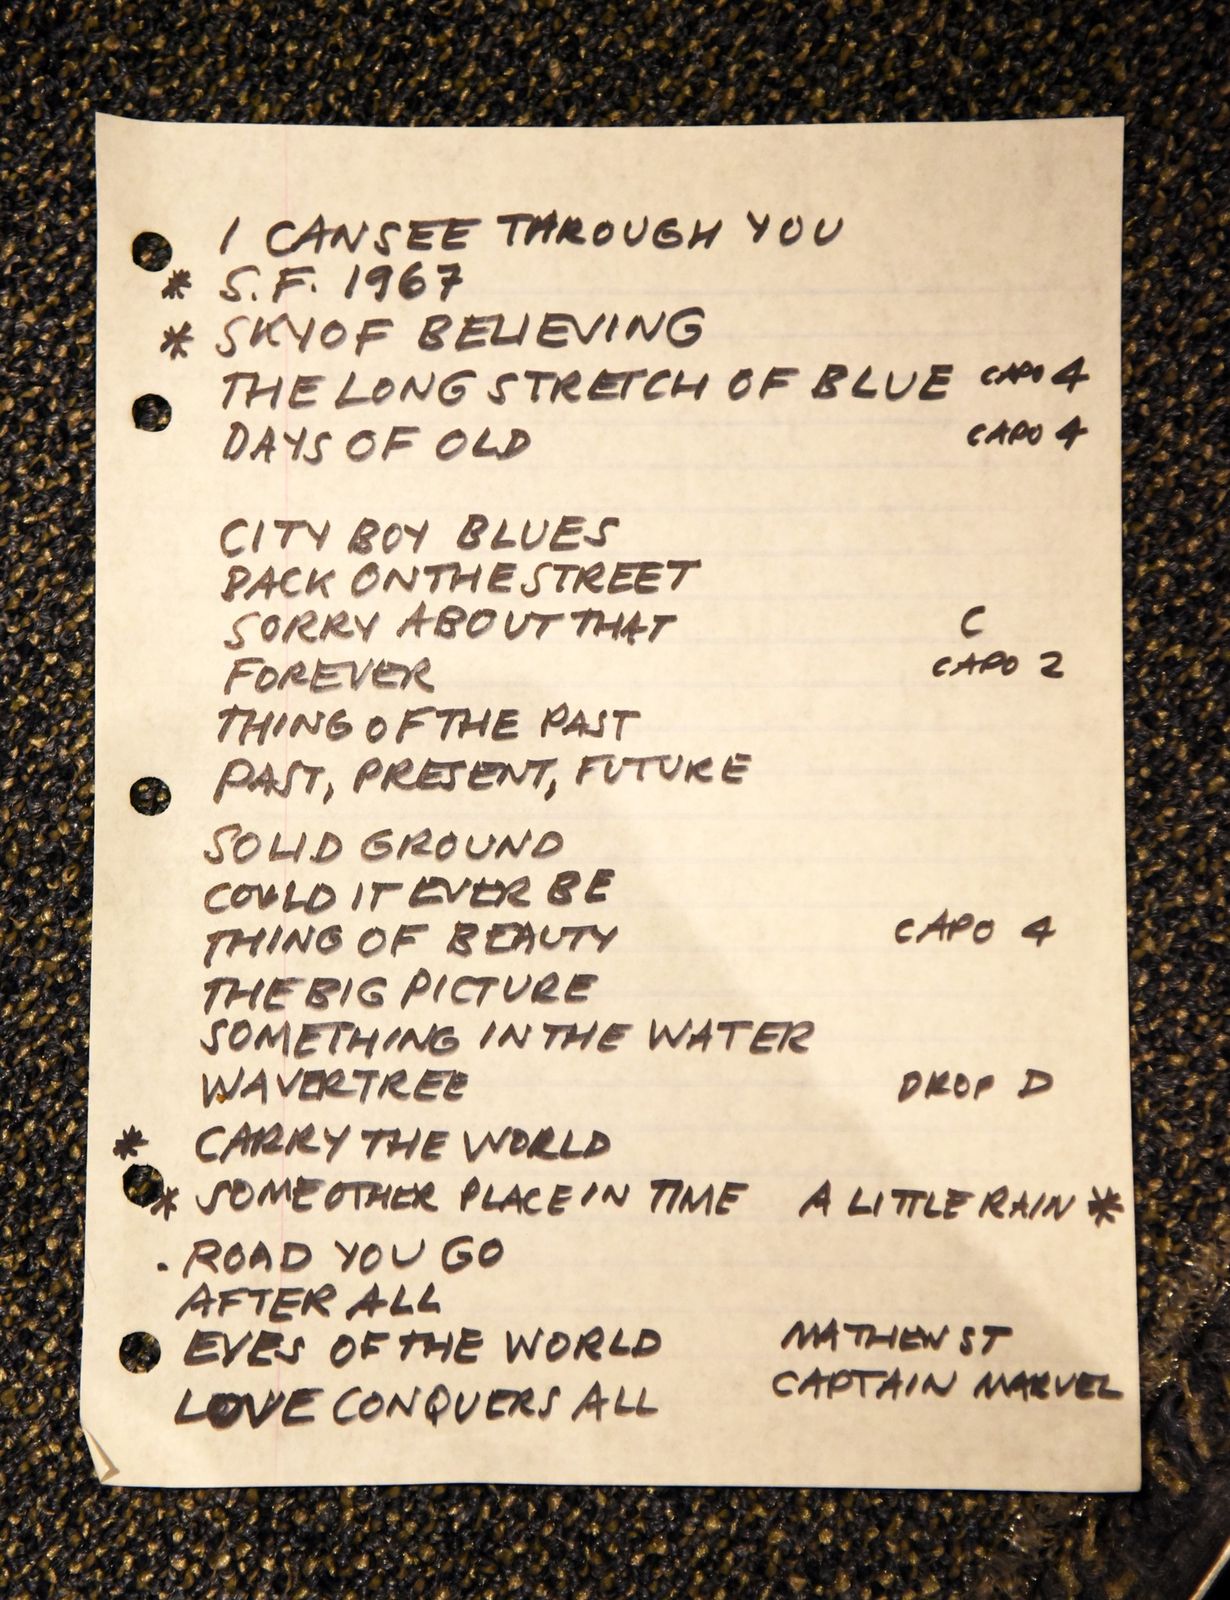 I CAN SEE THROUGH YOU
* S.F. 1967
* SKY OF BELIEVING
THE LONG STRETCH OF BLUE CAPO 4
DAYS OF OLD CAPO 4
CITY BOY BLUES
BACK ON THE STREET
SORRY ABOUT THAT C
FOREVER CAPO 2
THING OF THE PAST
PAST, PRESENT, FUTURE
SOLID GROUND
COULD IT EVER BE
THING OF BEAUTY CAPO 4
THE BIG PICTURE
SOMETHING IN THE WATER
WAVERTREE DROP D
* CARRY THE WORLD
* SOME OTHER PLACE IN TIME A LITTLE RAIN *
. ROAD YOU GO
AFTER ALL
EYES OF THE WORLD MATHEW ST
LOVE CONQUERS ALL CAPTAIN MARVEL